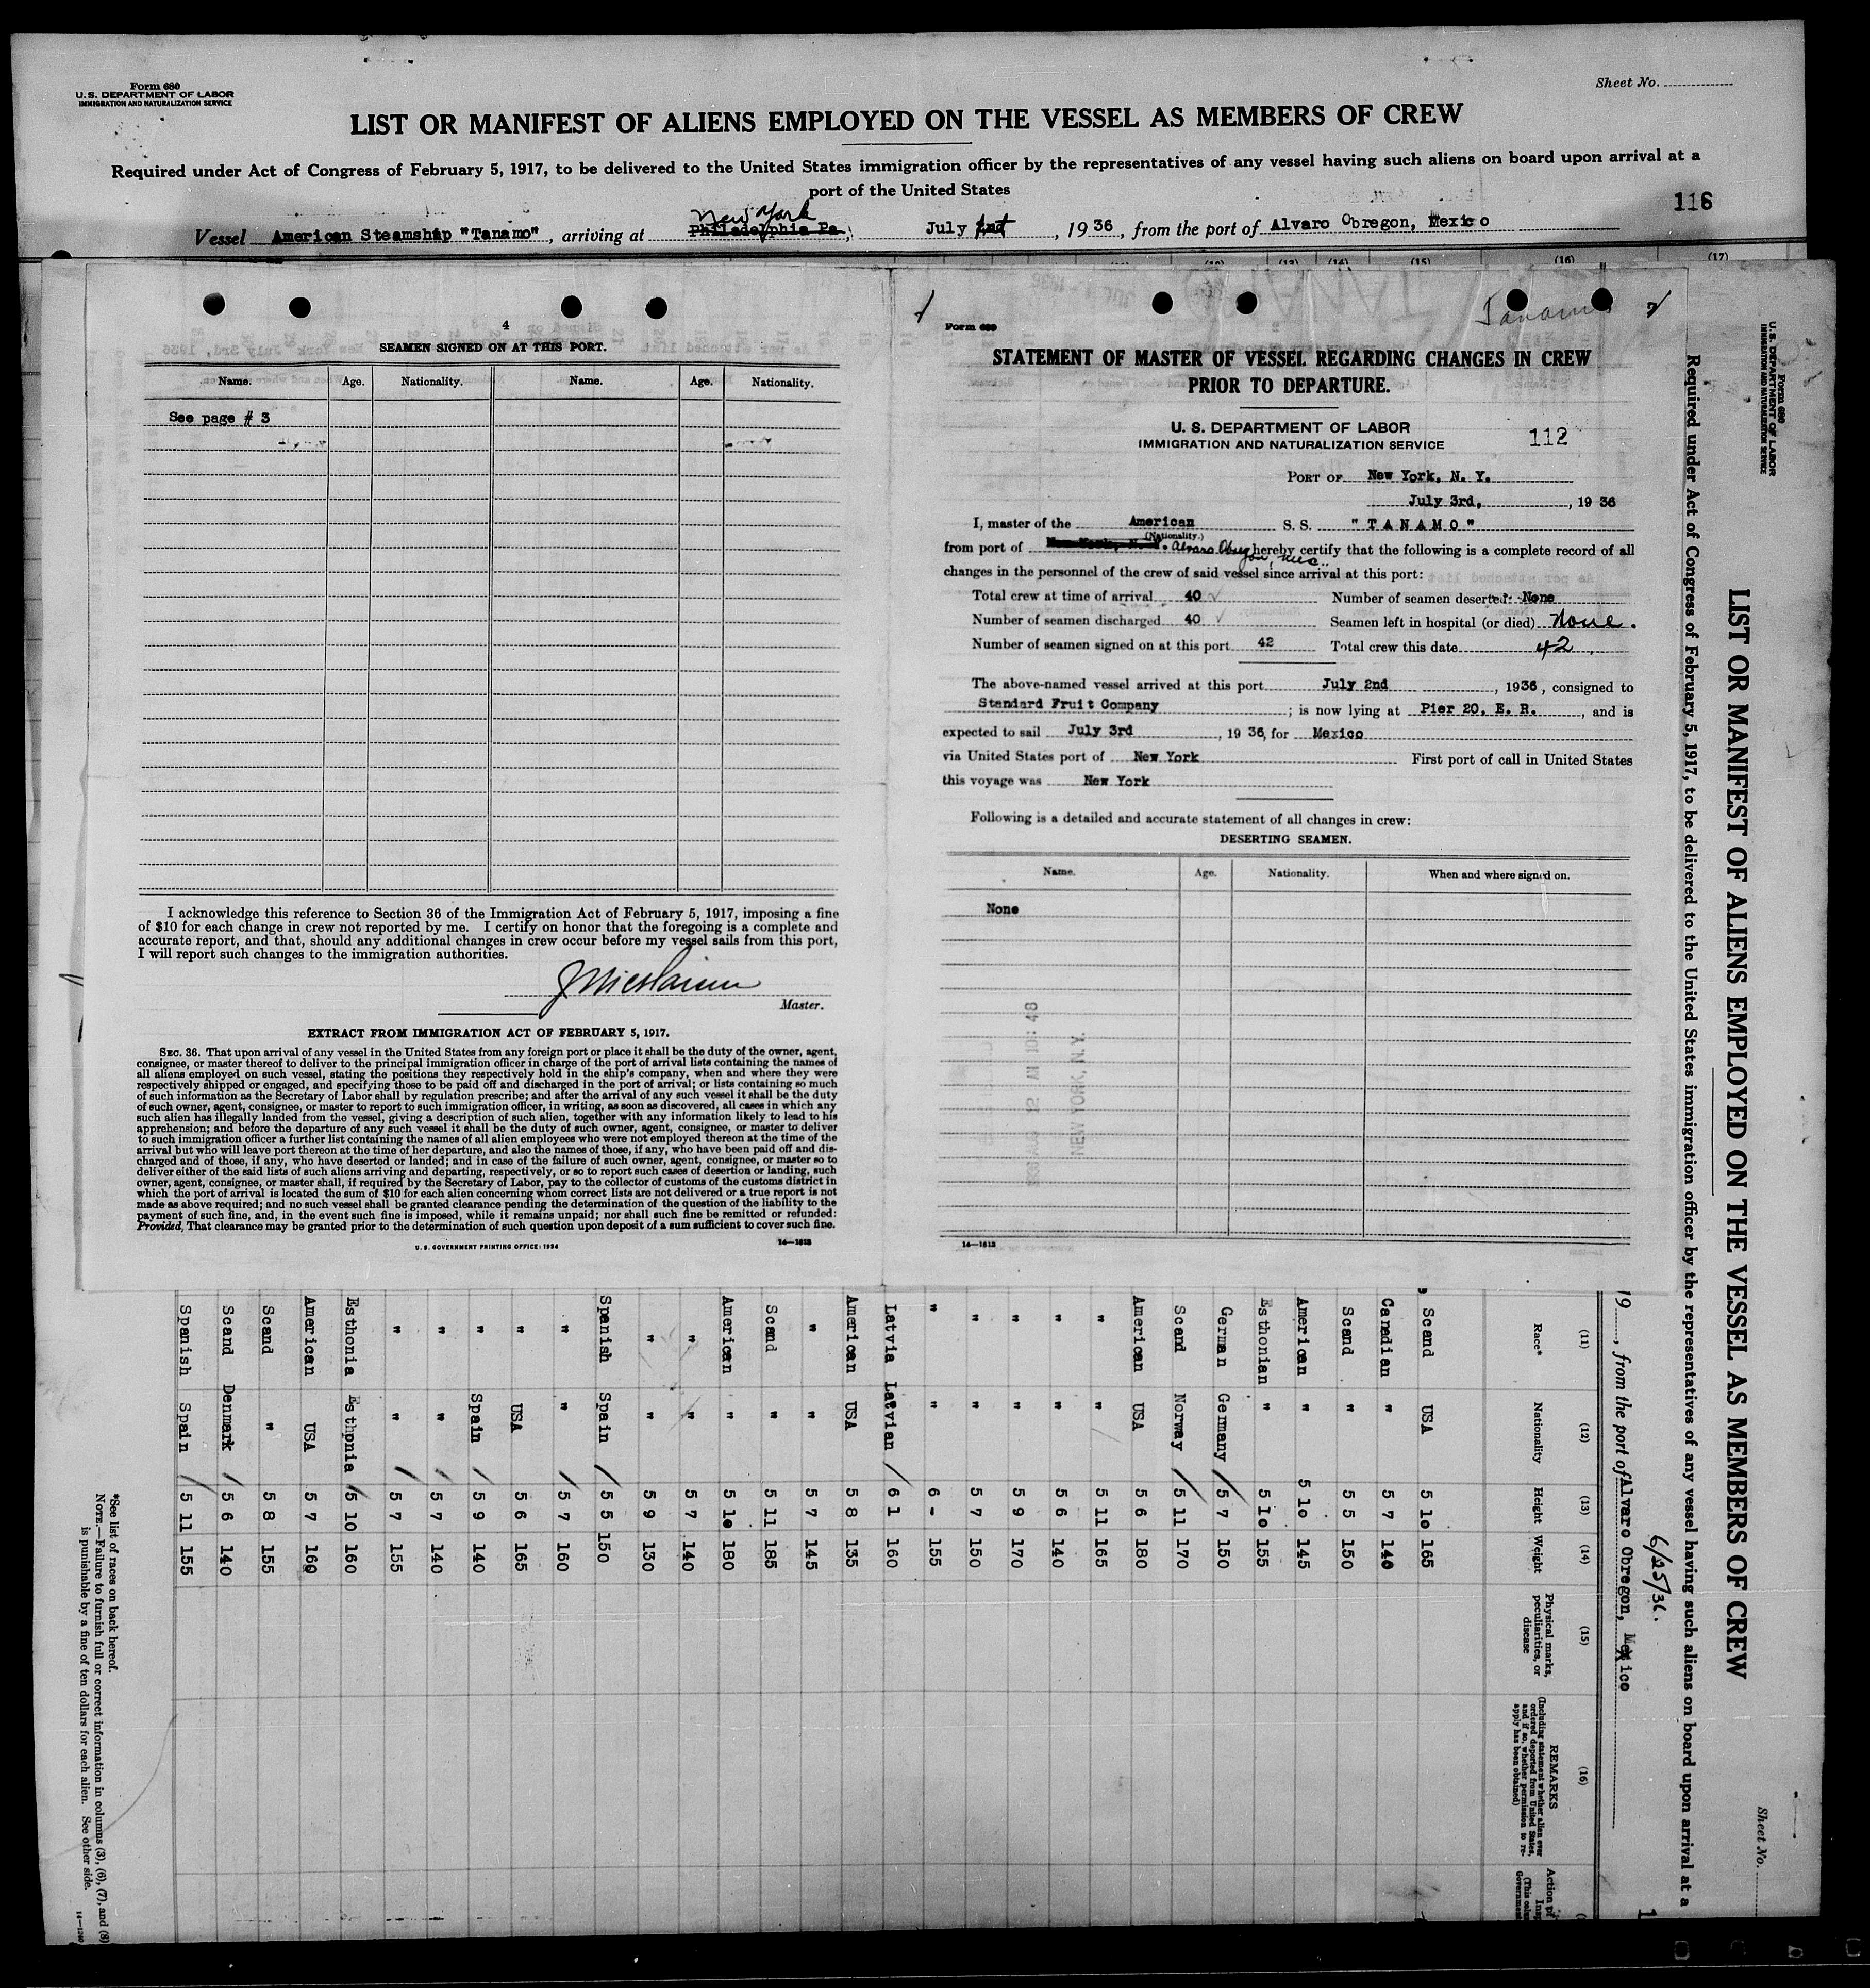 Form 680
U. S. DEPARTMENT OF LABOR
IMMIGRATION AND NATURALIZATION SERVICE
Sheet No.
LIST OR MANIFEST OF ALIENS EMPLOYED ON THE VESSEL AS MEMBERS OF CREW
Required under Act of Congress of February 5, 1917, to be delivered to the United States immigration officer by the representatives of any vessel having such aliens on board upon arrival at a
port of the United States
116
New York
Vessel American Steamship "Tanamo", arriving at Philadelphia Pa, July 2nd, 1936, from the port of Alvaro Obregon, Mexico
(15) (16) (17)
4
SEAMEN SIGNED ON AT THIS PORT.
Name. Age. Nationality. Name. Age. Nationality.
See page # 3
I acknowledge this reference to Section 36 of the Immigration Act of February 5, 1917, imposing a fine
of $10 for each change in crew not reported by me. I certify on honor that the foregoing is a complete and
accurate report, and that, should any additional changes in crew occur before my vessel sails from this port,
I will report such changes to the immigration authorities.
Master.
EXTRACT FROM IMMIGRATION ACT OF FEBRUARY 5, 1917.
SEC. 36. That upon arrival of any vessel in the United States from any foreign port or place it shall be the duty of the owner, agent,
consignee, or master thereof to deliver to the principal immigration officer in charge of the port of arrival lists containing the names of
all aliens employed on such vessel, stating the positions they respectively hold in the ship's company, when and where they were
respectively shipped or engaged, and specifying those to be paid off and discharged in the port of arrival; or lists containing so much
of such information as the Secretary of Labor shall by regulation prescribe; and after the arrival of any such vessel it shall be the duty
of such owner, agent, consignee, or master to report to such immigration officer, in writing, as soon as discovered, all cases in which any
such alien has illegally landed from the vessel, giving a description of such alien, together with any information likely to lead to his
apprehension; and before the departure of any such vessel it shall be the duty of such owner, agent, consignee, or master to deliver
to such immigration officer a further list containing the names of all alien employees who were not employed thereon at the time of the
arrival but who will leave port thereon at the time of her departure, and also the names of those, if any, who have been paid off and dis-
charged and of those, if any, who have deserted or landed; and in case of the failure of such owner, agent, consignee, or master so to
deliver either of the said lists of such aliens arriving and departing, respectively, or so to report such cases of desertion or landing, such
owner, agent, consignee, or master shall, if required by the Secretary of Labor, pay to the collector of customs of the customs district in
which the port of arrival is located the sum of $10 for each alien concerning whom correct lists are not delivered or a true report is not
made as above required; and no such vessel shall be granted clearance pending the determination of the question of the liability to the
payment of such fine, and, in the event such fine is imposed, while it remains unpaid; nor shall such fine be remitted or refunded:
Provided, That clearance may be granted prior to the determination of such question upon deposit of a sum sufficient to cover such fine.
U. S. GOVERNMENT PRINTING OFFICE: 1934 14—1613
Form 689
Tanamo
STATEMENT OF MASTER OF VESSEL REGARDING CHANGES IN CREW
PRIOR TO DEPARTURE.
U. S. DEPARTMENT OF LABOR
IMMIGRATION AND NATURALIZATION SERVICE
112
PORT OF New York, N. Y.
July 3rd, 1936
I, master of the American S. S. "TANAMO"
(Nationality.)
from port of New York, N. Y. Alvaro Obregon, Mex. hereby certify that the following is a complete record of all
changes in the personnel of the crew of said vessel since arrival at this port:
Total crew at time of arrival 40 Number of seamen deserted: None
Number of seamen discharged 40 Seamen left in hospital (or died) None.
Number of seamen signed on at this port 42 Total crew this date 42
The above-named vessel arrived at this port July 2nd, 1936, consigned to
Standard Fruit Company; is now lying at Pier 20, E. R., and is
expected to sail July 3rd, 1936, for Mexico
via United States port of New York First port of call in United States
this voyage was New York
Following is a detailed and accurate statement of all changes in crew:
DESERTING SEAMEN.
Name. Age. Nationality. When and where signed on.
None
NEW YORK, N.Y.
14—1613
Form 680
U. S. DEPARTMENT OF LABOR
IMMIGRATION AND NATURALIZATION SERVICE
Sheet No.
LIST OR MANIFEST OF ALIENS EMPLOYED ON THE VESSEL AS MEMBERS OF CREW
Required under Act of Congress of February 5, 1917, to be delivered to the United States immigration officer by the representatives of any vessel having such aliens on board upon arrival at a
6/25/36.
19, from the port of Alvaro Obregon, Mexico
(11) (12) (13) (14) (15) (16)
Race* Nationality Height Weight Physical marks, peculiarities, or disease REMARKS
(Including statement whether alien ever
ordered deported from United States,
and if so, whether permission to re-
apply has been obtained)
Scand USA 5 10 165
Canadian " 5 7 140
Scand " 5 5 150
American " 5 10 145
Esthonian " 5 10 155
German Germany 5 7 150
Scand Norway 5 11 170
American USA 5 6 180
" " 5 11 165
" " 5 6 140
" " 5 9 170
" " 5 7 150
" " 6 - 155
Latvia Latvian 6 1 160
American USA 5 8 135
" " 5 7 145
Scand " 5 11 185
American " 5 10 180
" " 5 7 140
" " 5 9 130
Spanish Spain 5 5 150
" " 5 7 160
" USA 5 6 165
" Spain 5 9 140
" " 5 7 140
" " 5 7 155
Esthonia Esthonia 5 10 160
American USA 5 7 160
Scand " 5 8 155
Scand Denmark 5 6 140
Spanish Spain 5 11 155
*See list of races on back hereof.
NOTE.—Failure to furnish full or correct information in columns (3), (6), (7), and (8)
is punishable by a fine of ten dollars for each alien. See other side.
14—1240